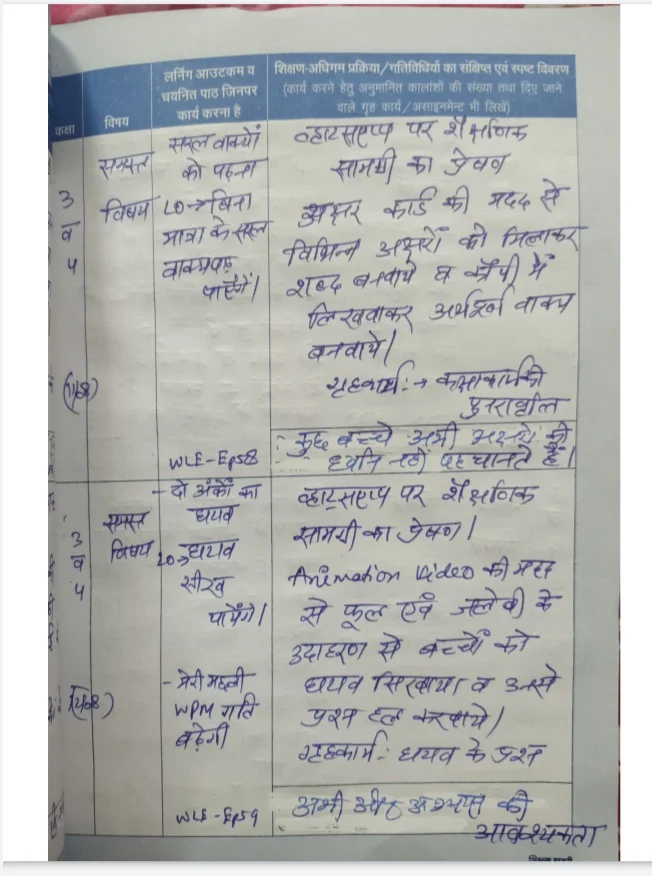 कक्षा
विषय
लर्निंग आउटकम व
चयनित पाठ जिनपर
कार्य करना है
शिक्षण-अधिगम प्रक्रिया/गतिविधियों का संक्षिप्त एवं स्पष्ट विवरण
(कार्य करने हेतु अनुमानित कालांशों की संख्या तथा दिए जाने
वाले गृह कार्य/असाइनमेन्ट भी लिखें)
3
व
4
समस्त
विषय
सरल वाक्यों
को पढ़ना
LO→ बिना
मात्रा के सरल
वाक्य पढ़
पाएँगे।
WLE-Ep58
व्हाट्सएप्प पर शैक्षणिक
सामग्री का प्रेषण
अक्षर कार्ड की मदद से
विभिन्न अक्षरों को मिलाकर
शब्द बनवाये व कॉपी में
लिखवाकर अर्थपूर्ण वाक्य
बनवाये।
गृहकार्य:→ कक्षाकार्य की
पुनरावृत्ति
कुछ बच्चे अभी अक्षरों की
ध्वनि नहीं पहचानते हैं।
3
व
4
समस्त
विषय
- दो अंकों का
घटाव
LO→ घटाव
सीख
पायेंगे।
- मेरी मछली
WPM गति
बढ़ेगी
WLE-Ep59
व्हाट्सएप्प पर शैक्षणिक
सामग्री का प्रेषण।
Animation Video की मदद
से फूल एवं जलेबी के
उदाहरण से बच्चों को
घटाव सिखाया व उनसे
प्रश्न हल करवाये।
गृहकार्य:- घटाव के प्रश्न
अभी और अभ्यास की
आवश्यकता